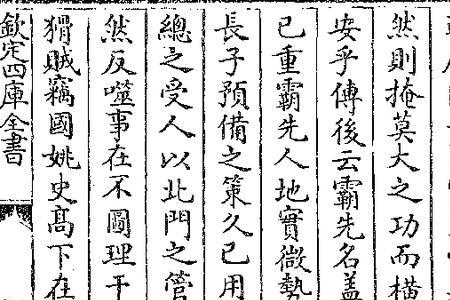 然則掩莫大之功而橫
安乎傳後云霸先名蓋
已重霸先人地實微勢
長子預備之策久已用
總之受人以北門之管
然反噬事在不圖理
猾賊竊國姚史高下在
欽定四庫全書